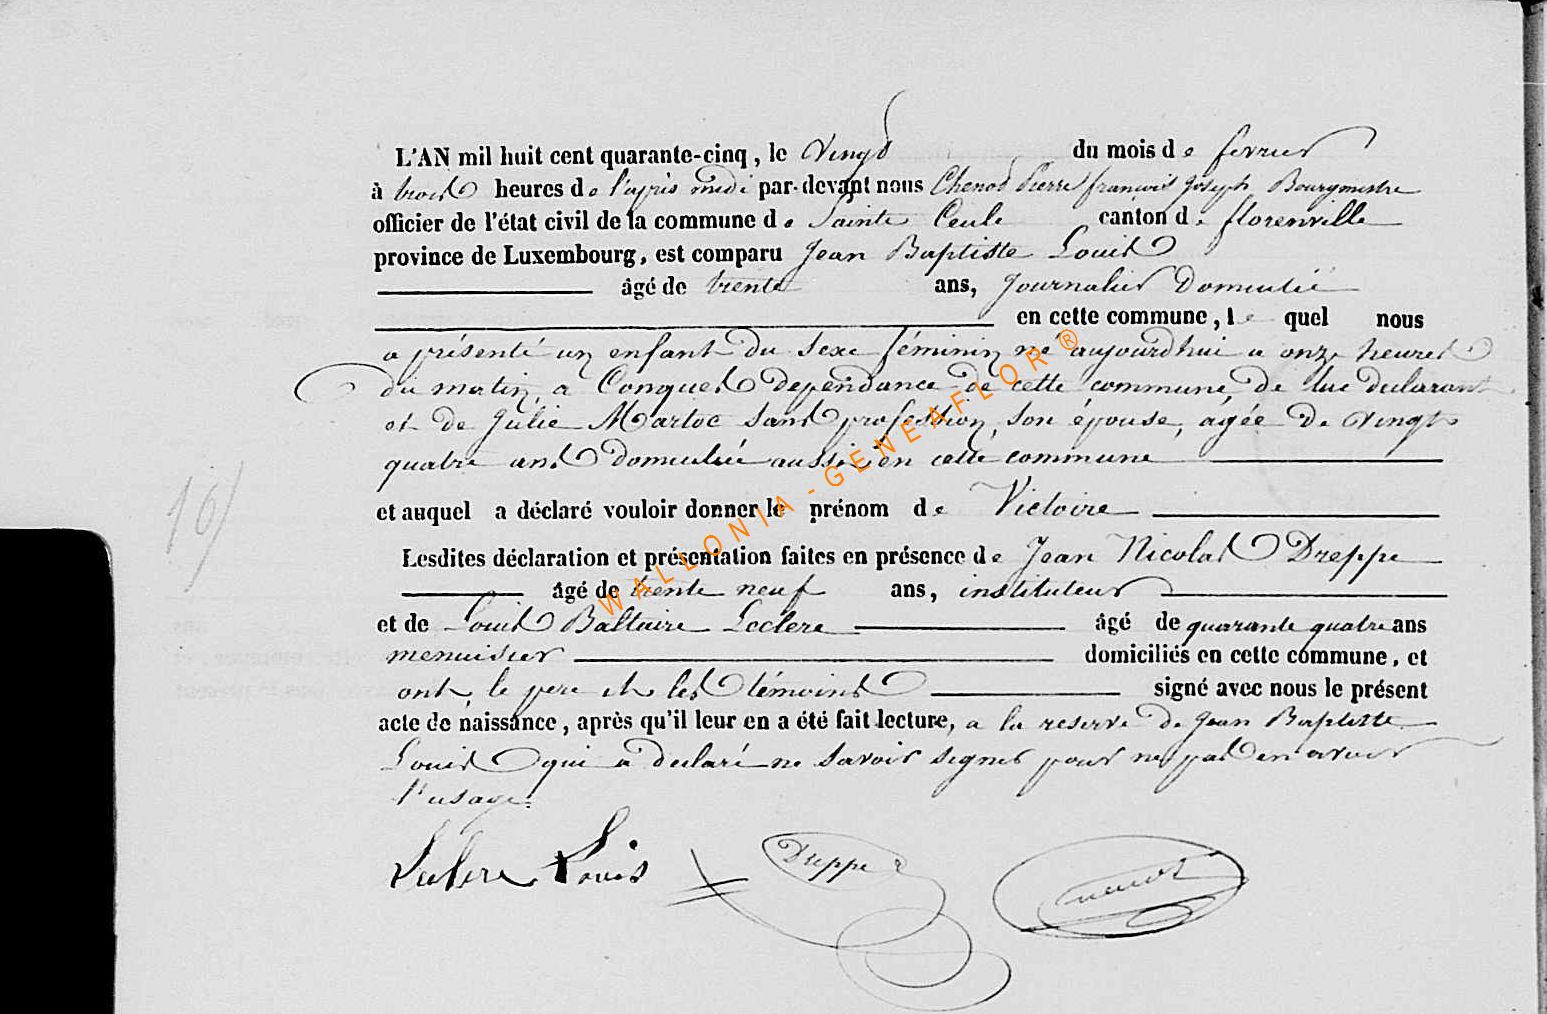 L'AN mil huit cent quarante-cinq, le vingt du mois de fevrier
à trois heures de l'après midi par-devant nous Chenot Pierre françois Joseph Bourgmestre
officier de l'état civil de la commune de Sainte Cecile canton de florenville
province de Luxembourg, est comparu Jean Baptiste Louis
âgé de trente ans, Journalier Domicilié
en cette commune, le quel nous
a présenté un enfant du sexe féminin né aujourdhui a onze heures
du matin, a Conques dependance de cette commune, de lui declarant
et de Julie Marloc sans profession, son épouse, agée de vingt
quatre ans Domiciliée aussi en cette commune
et auquel a déclaré vouloir donner le prénom de Victoire
10/
Lesdites déclaration et présentation faites en présence de Jean Nicolas Dreppe
âgé de trente neuf ans, instituteur
et de Louis Baltaire Leclere âgé de quarante quatre ans
menuisier domiciliés en cette commune, et
ont le pere et les témoins signé avec nous le présent
acte de naissance, après qu'il leur en a été fait lecture, a la reserve de Jean Baptiste
Louis qui a declaré ne savoir signer pour ne pas en avoir
l'usage.
Leclere Louis Dreppe Chenot
WALLONIA-GENEAFLOR®